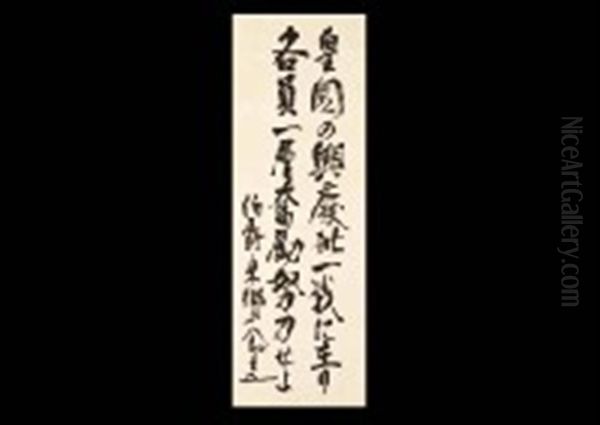 皇國の興廢此一戦に在り
各員一層奮励努力せよ
伯爵東郷平八郎書
NiceArtGallery.com